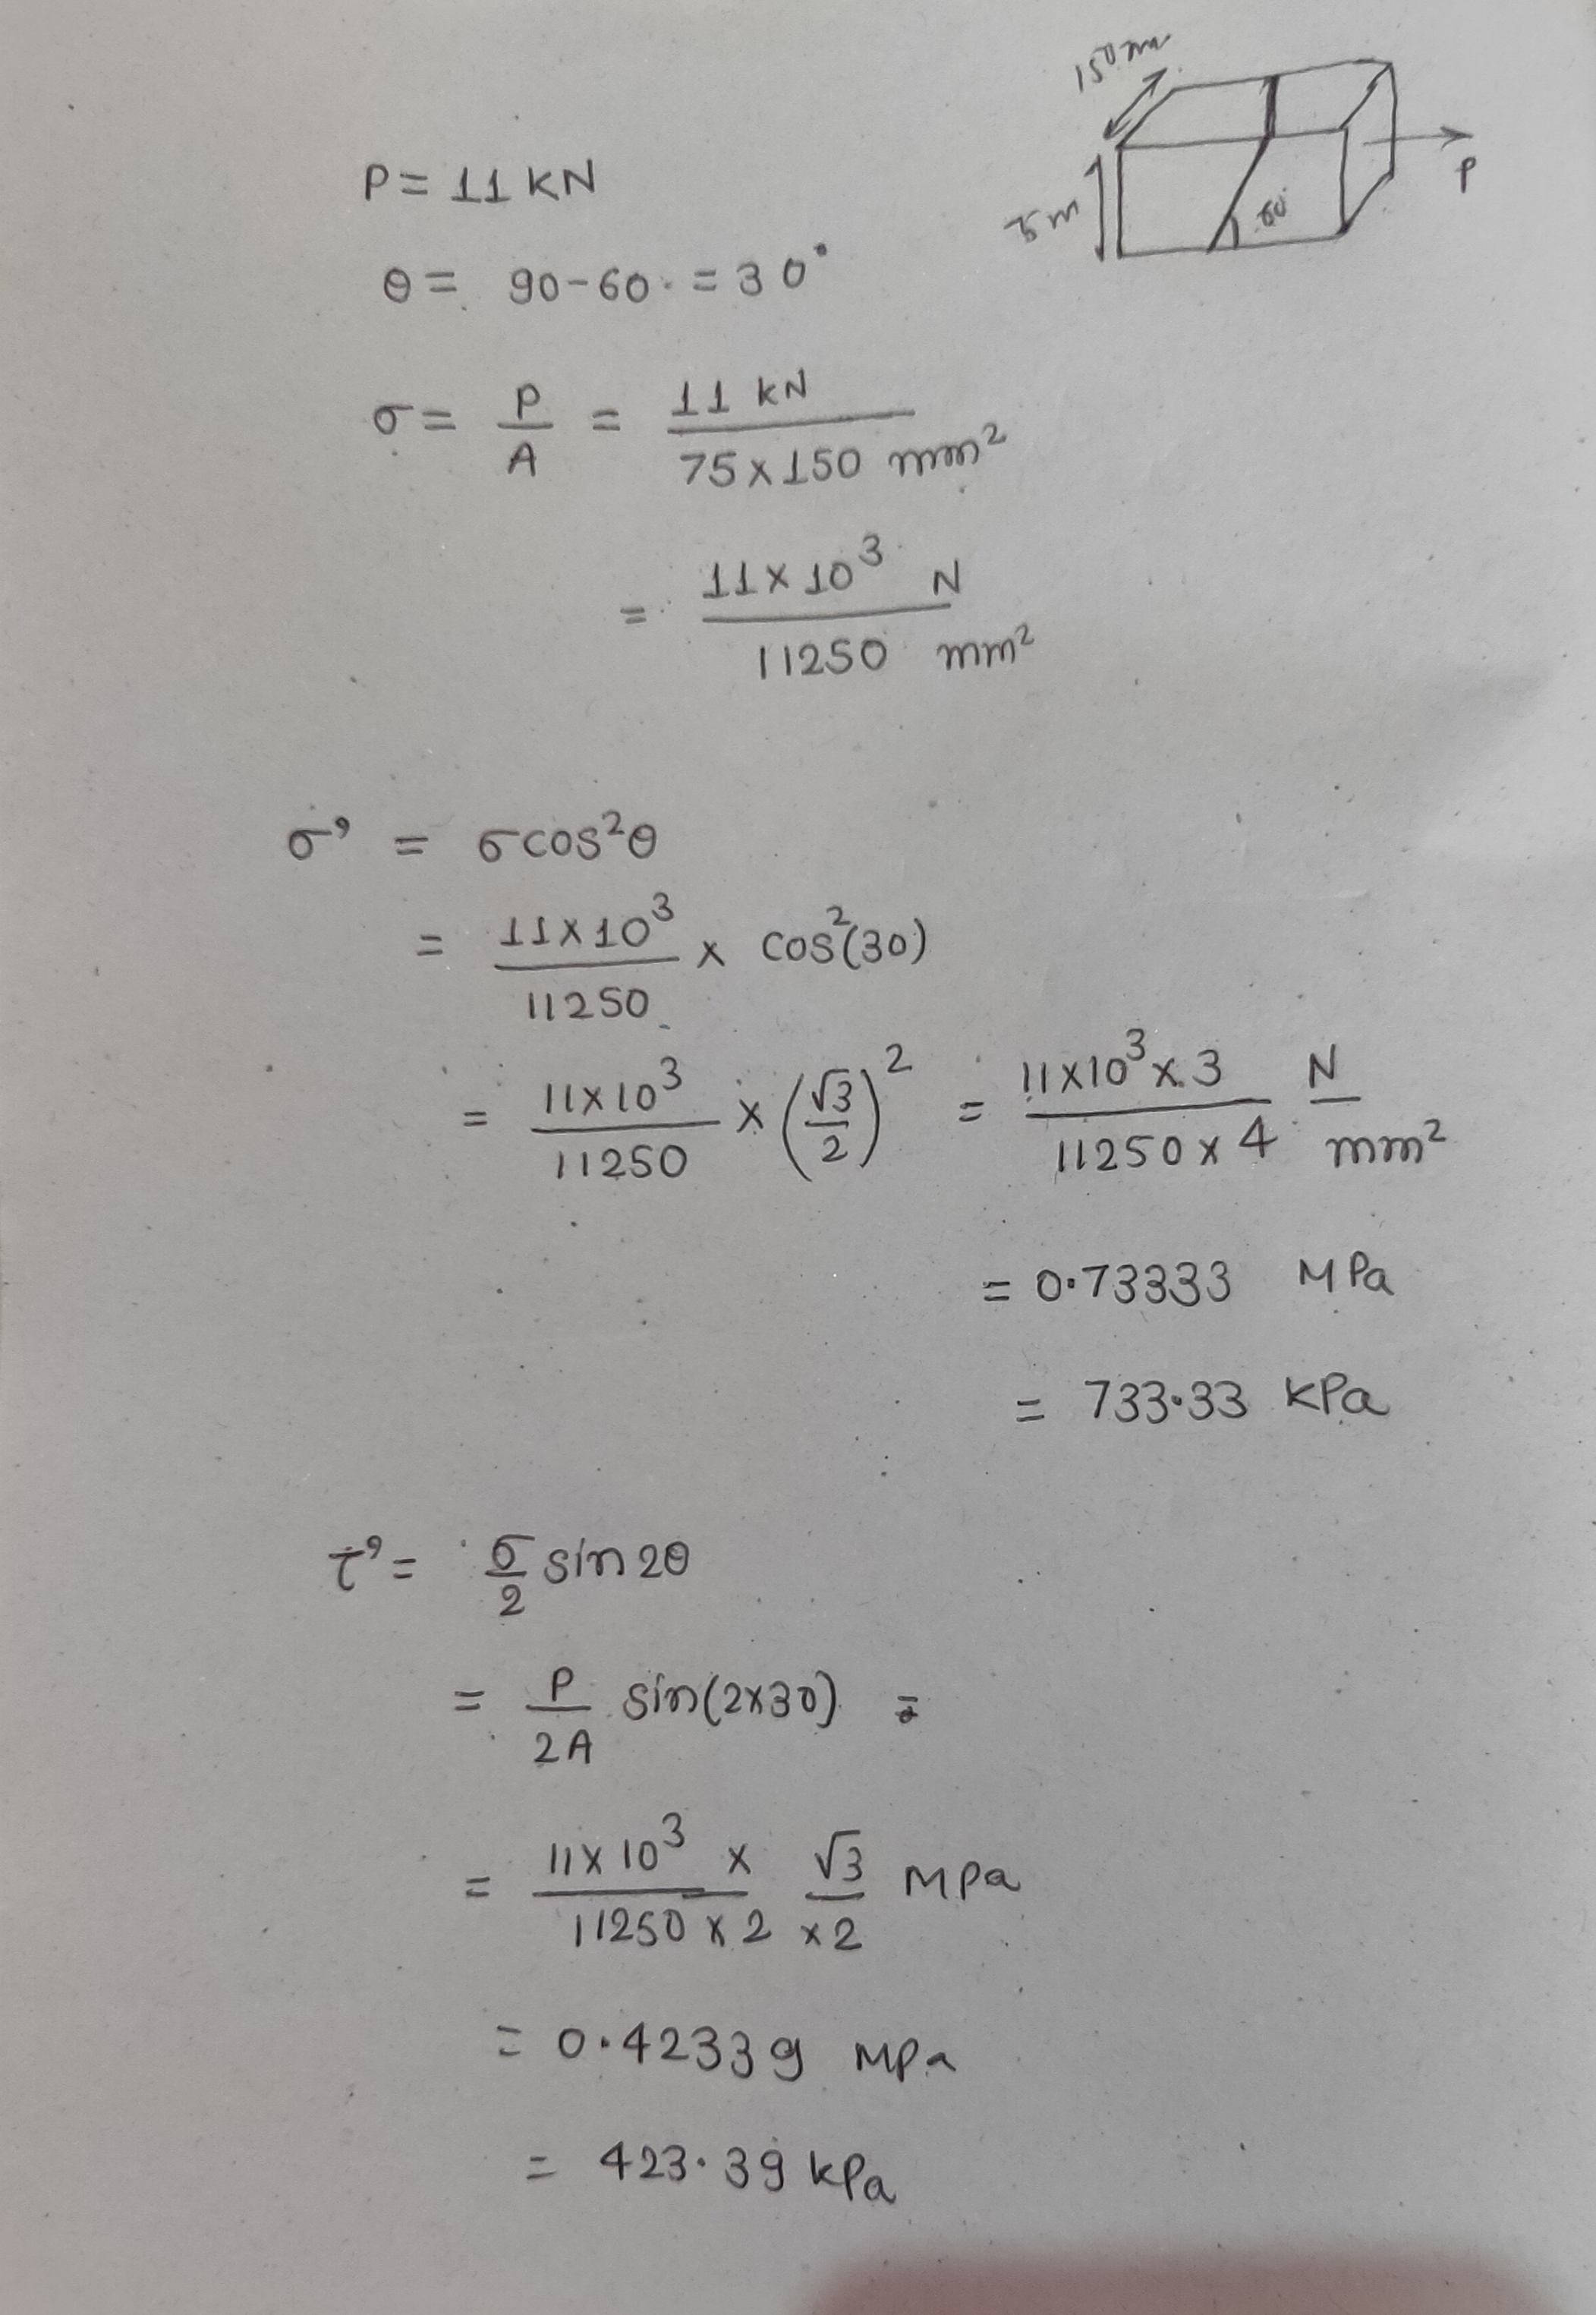 150 mm
P
5 m
60°
P = 11 kN
θ = 90-60 = 30°
σ = P/A = 11 kN / 75 x 150 mm²
= 11 x 10³ N / 11250 mm²
σ' = σ cos²θ
= 11 x 10³ / 11250 x cos²(30)
= 11 x 10³ / 11250 x (√3/2)² = 11 x 10³ x 3 / 11250 x 4 N/mm²
= 0.73333 MPa
= 733.33 kPa
τ' = σ/2 sin 2θ
= P/2A sin(2x30) =
= 11 x 10³ x √3 / 11250 x 2 x 2 MPa
= 0.42339 MPa
= 423.39 kPa